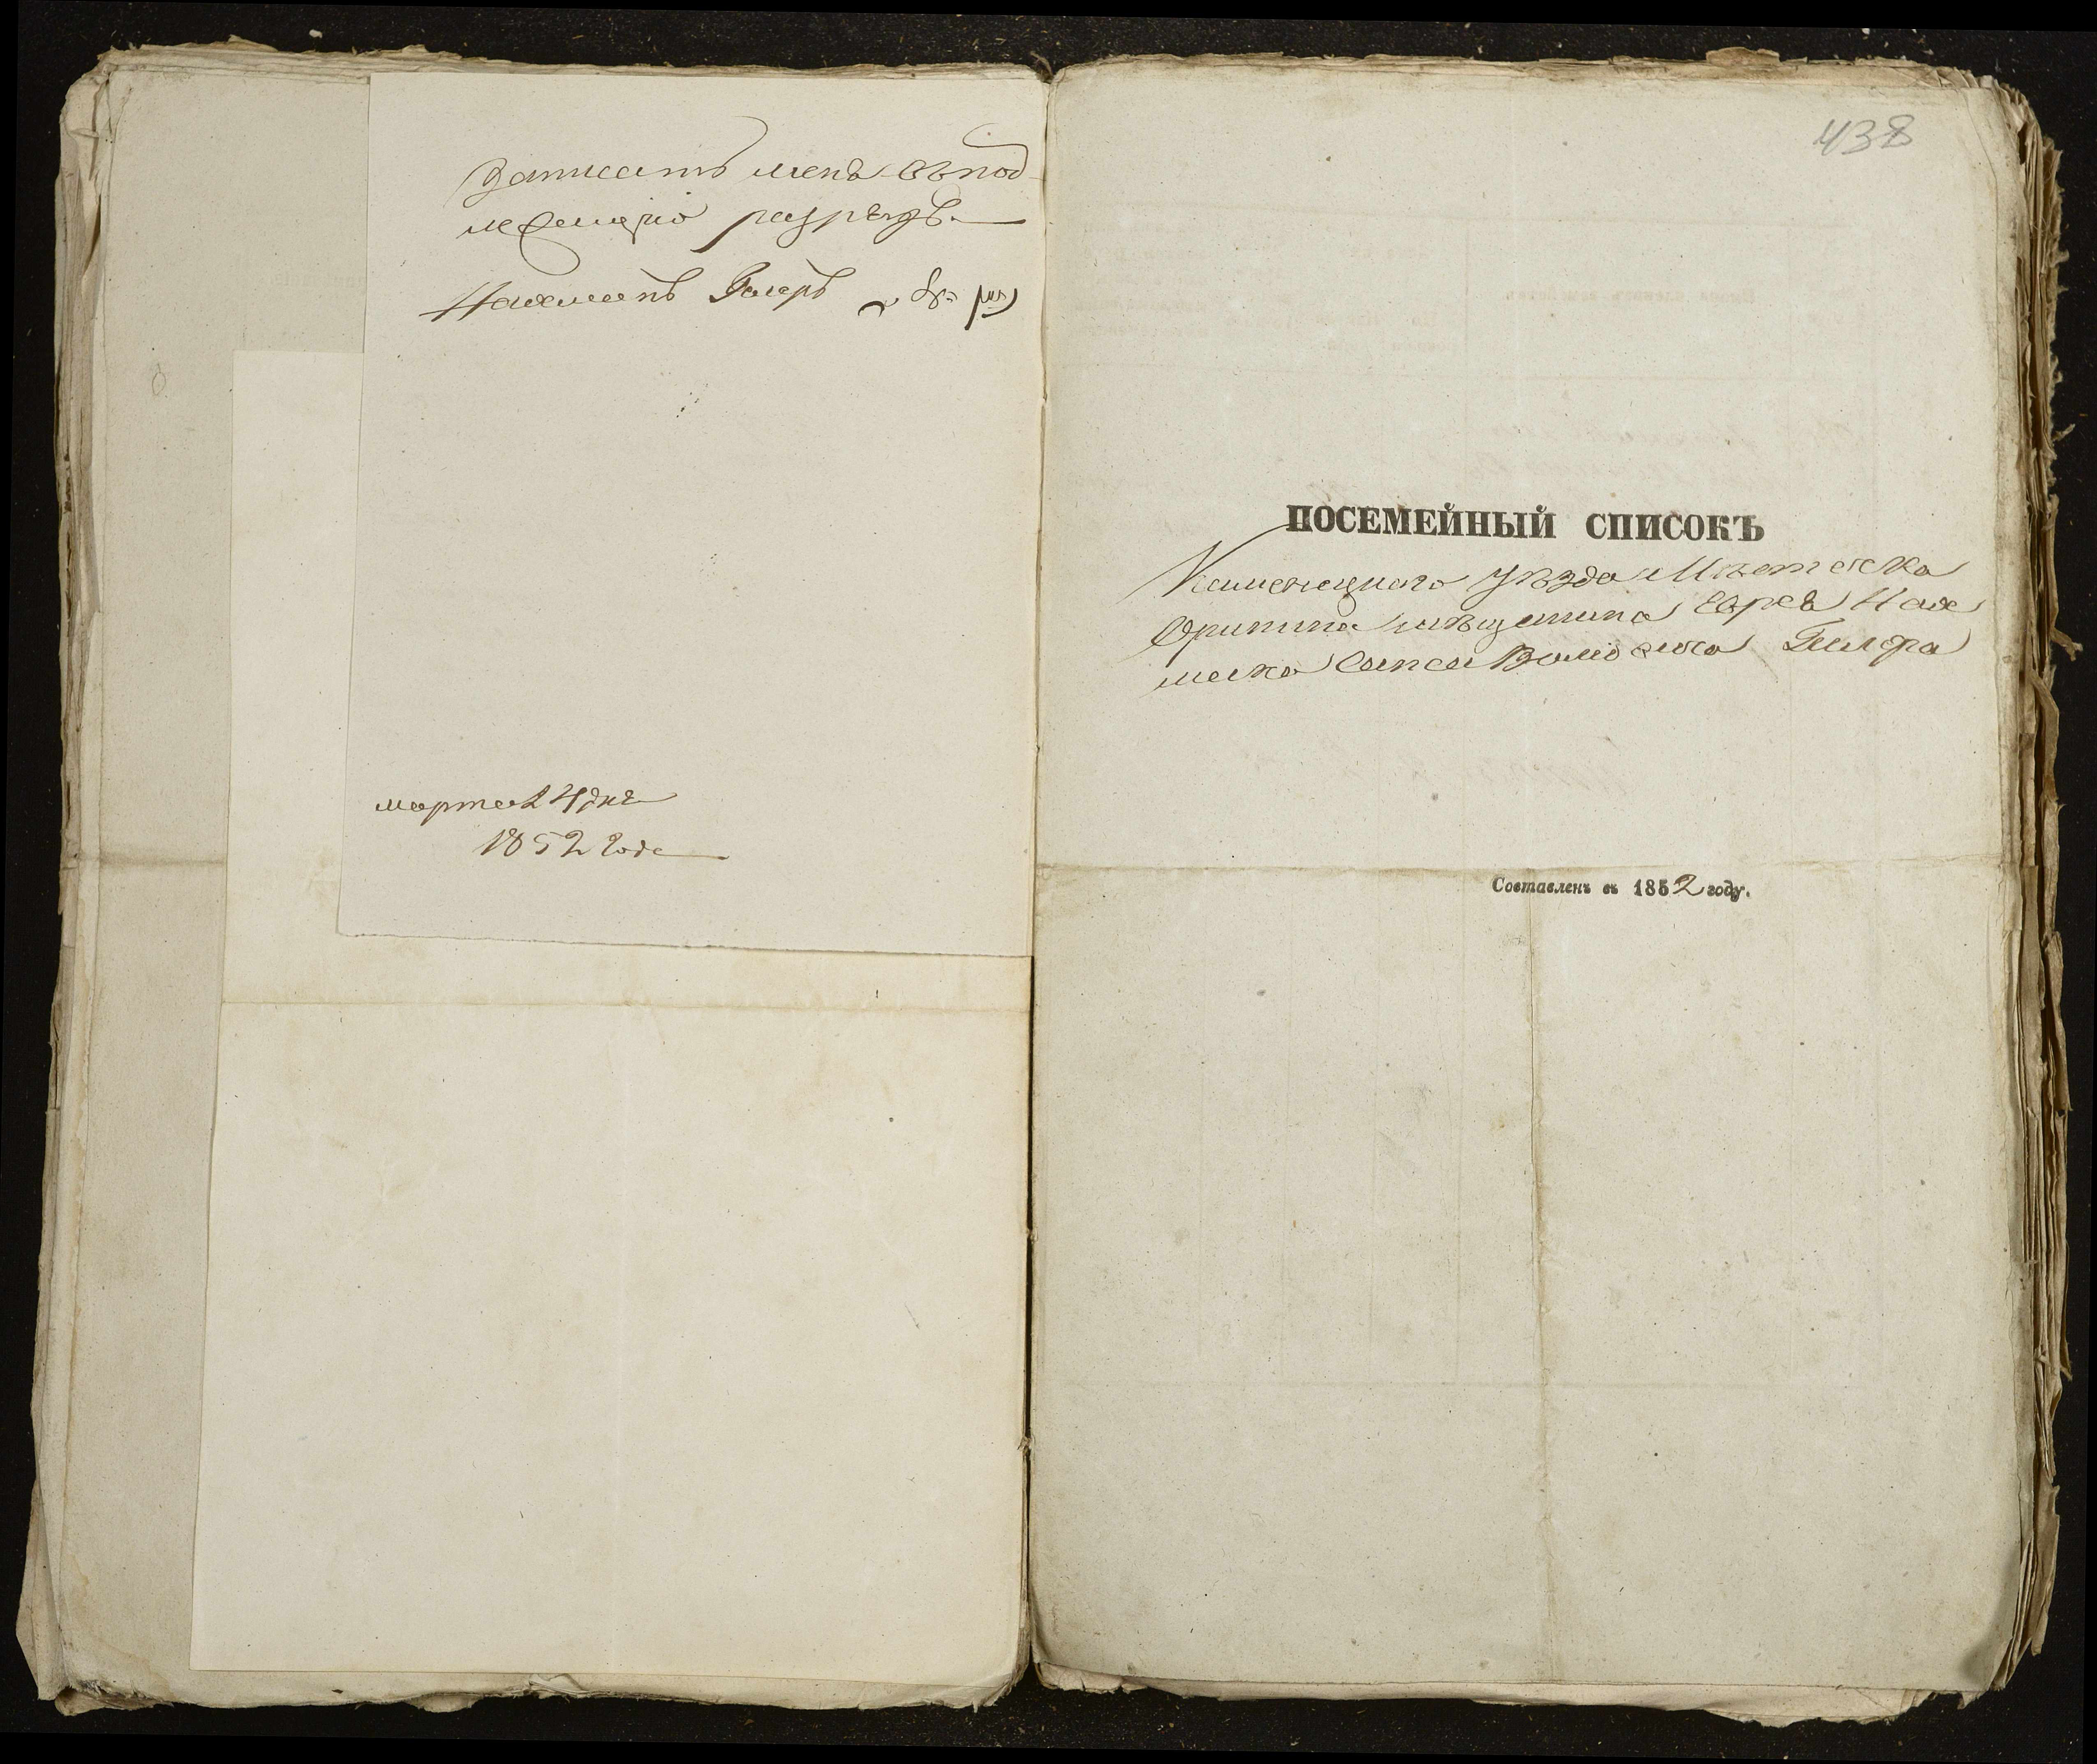 записать меня въ под-
лежащій разрядъ.
Нахманъ Гелеръ
марта 24 дня
1852 года
438
ПОСЕМЕЙНЫЙ СПИСОКЪ
Каменецкаго уѣзда Мѣстечка
Оринина мѣщанина Еврея Нах
мана сына Гелера
Составленъ въ 1852 году.